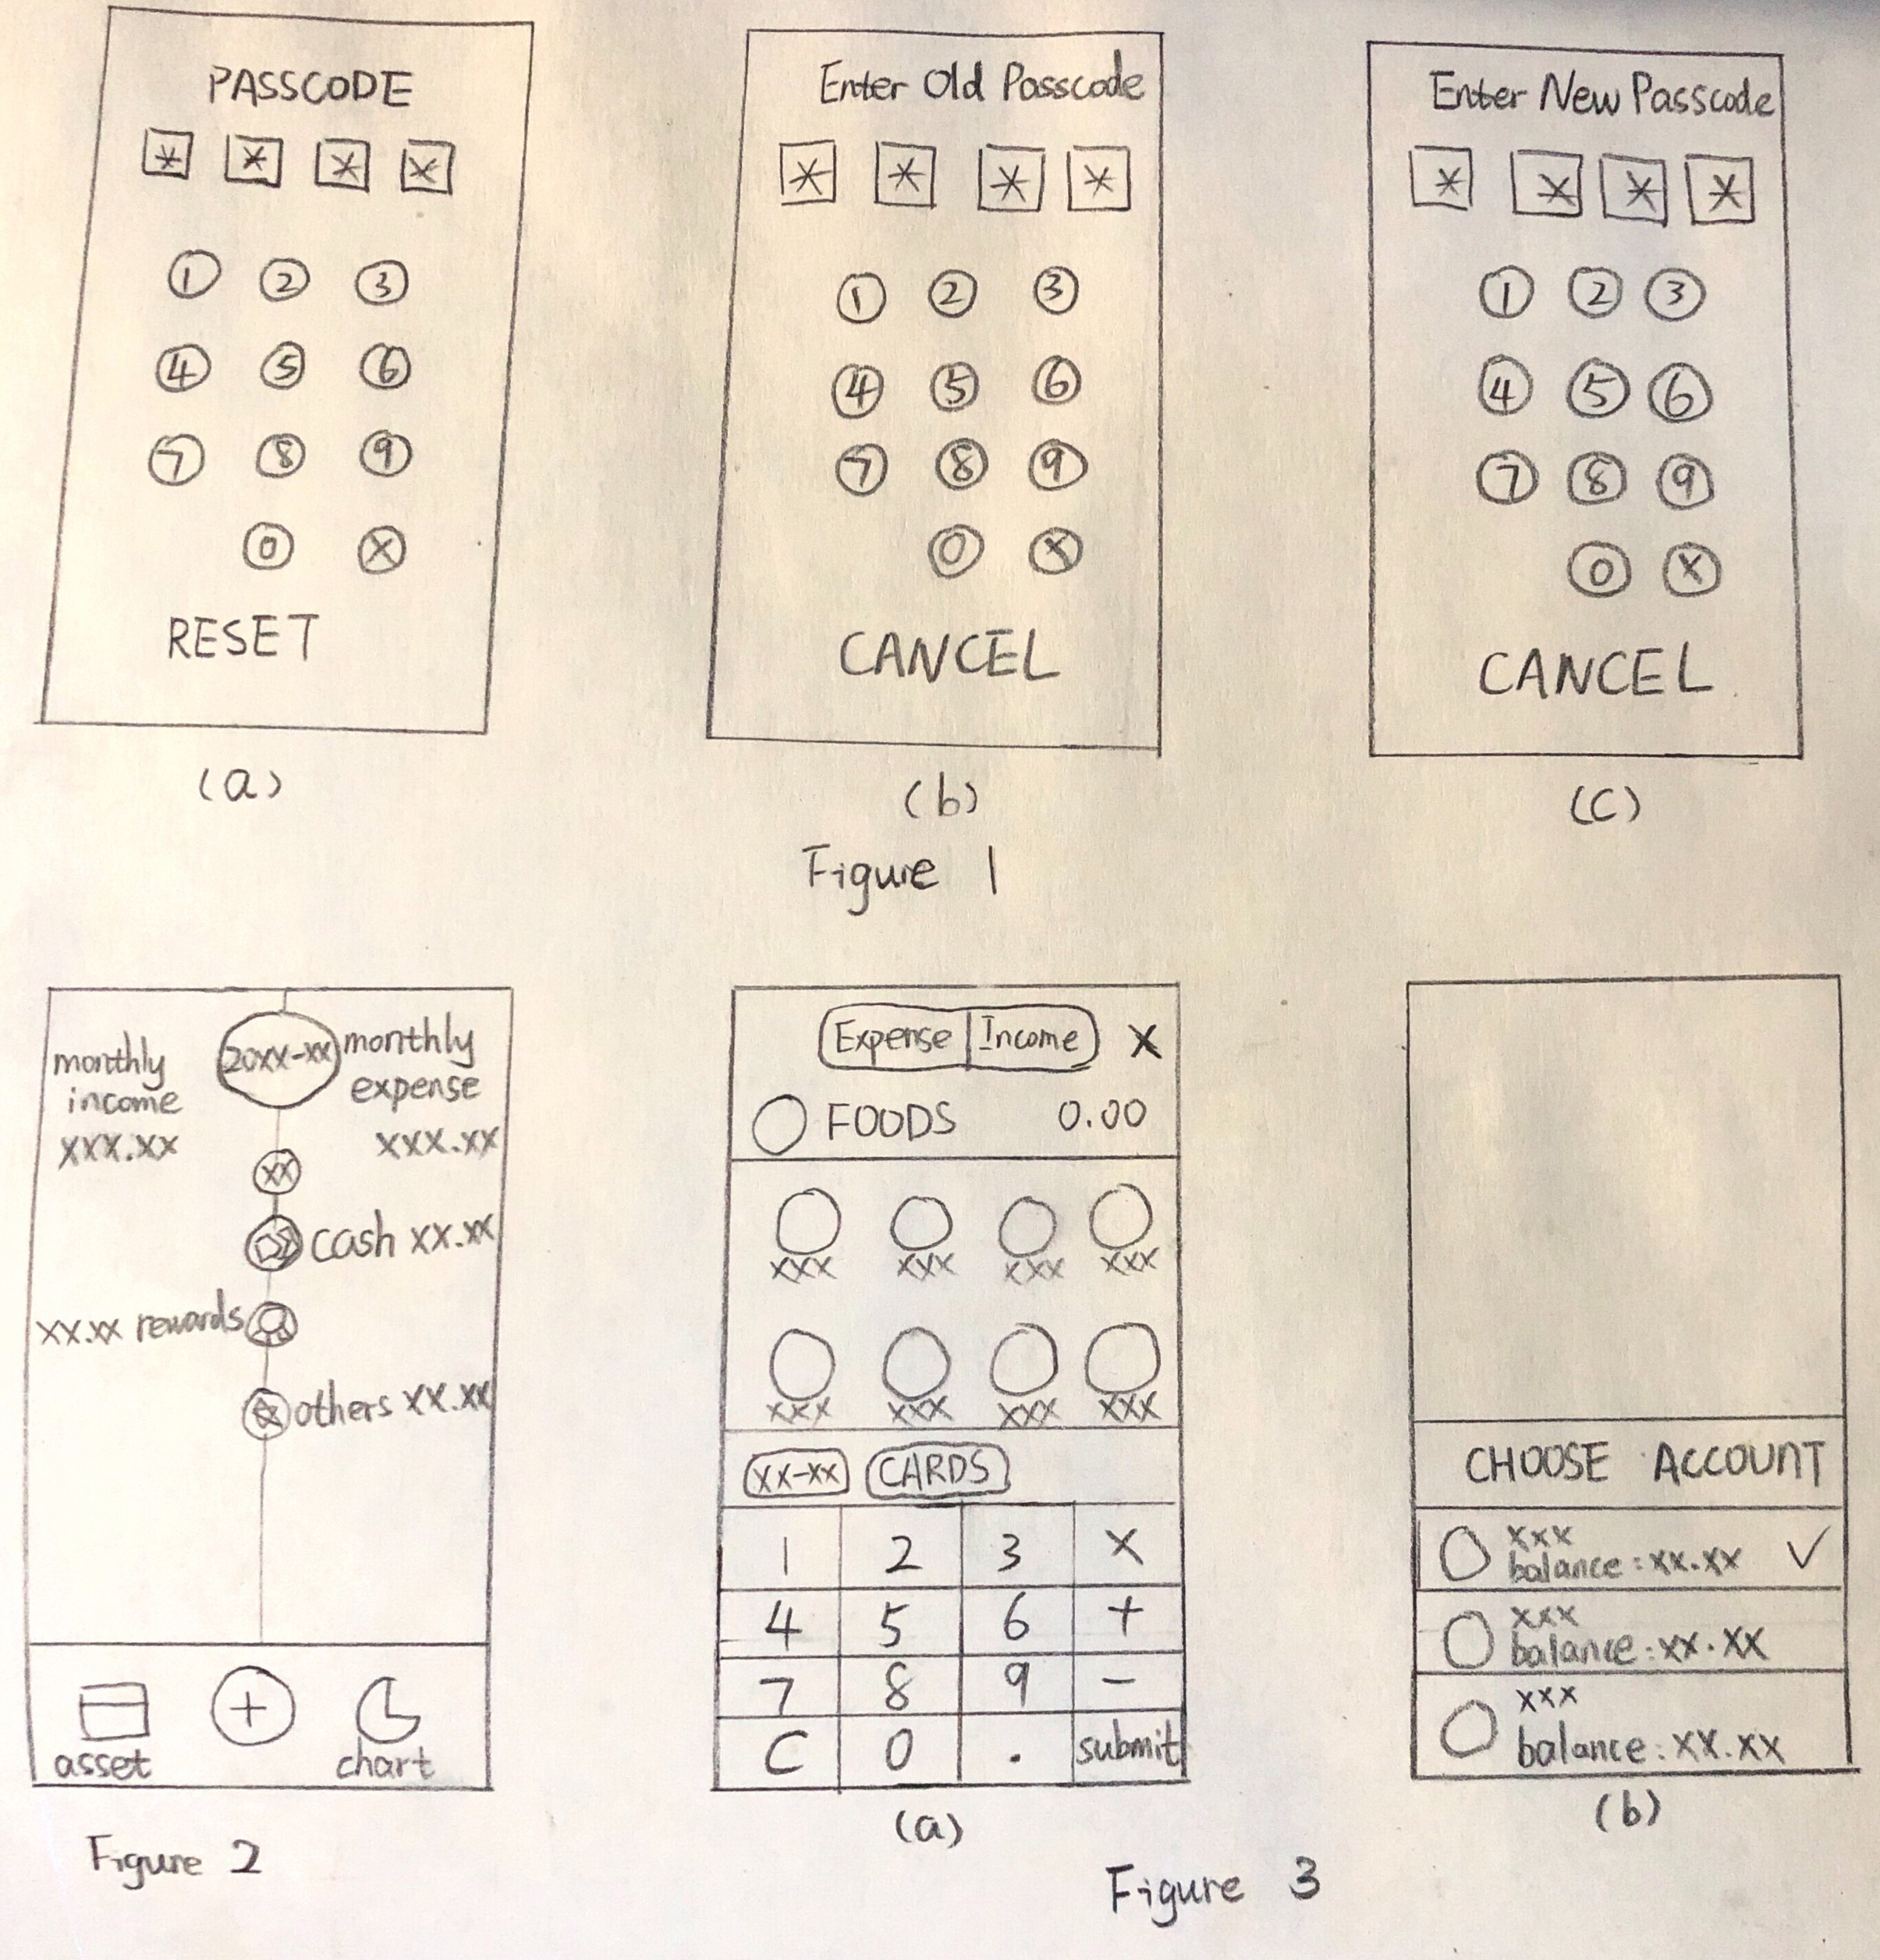 PASSCODE
* * * *
1 2 3
4 5 6
7 8 9
0 X
RESET
(a)
Enter Old Passcode
* * * *
1 2 3
4 5 6
7 8 9
0 X
CANCEL
(b)
Enter New Passcode
* * * *
1 2 3
4 5 6
7 8 9
0 X
CANCEL
(c)
Figure 1
monthly
income
xxx.xx
20xx-xx
monthly
expense
xxx.xx
xx
cash xx.xx
xx.xx rewards
others xx.xx
+
asset
chart
Figure 2
Expense Income X
FOODS 0.00
xxx xxx xxx xxx
xxx xxx xxx xxx
xx-xx CARDS
1 2 3 X
4 5 6 +
7 8 9 -
C 0 . submit
(a)
CHOOSE ACCOUNT
xxx
balance: xx.xx ✓
xxx
balance: xx.xx
xxx
balance: xx.xx
(b)
Figure 3